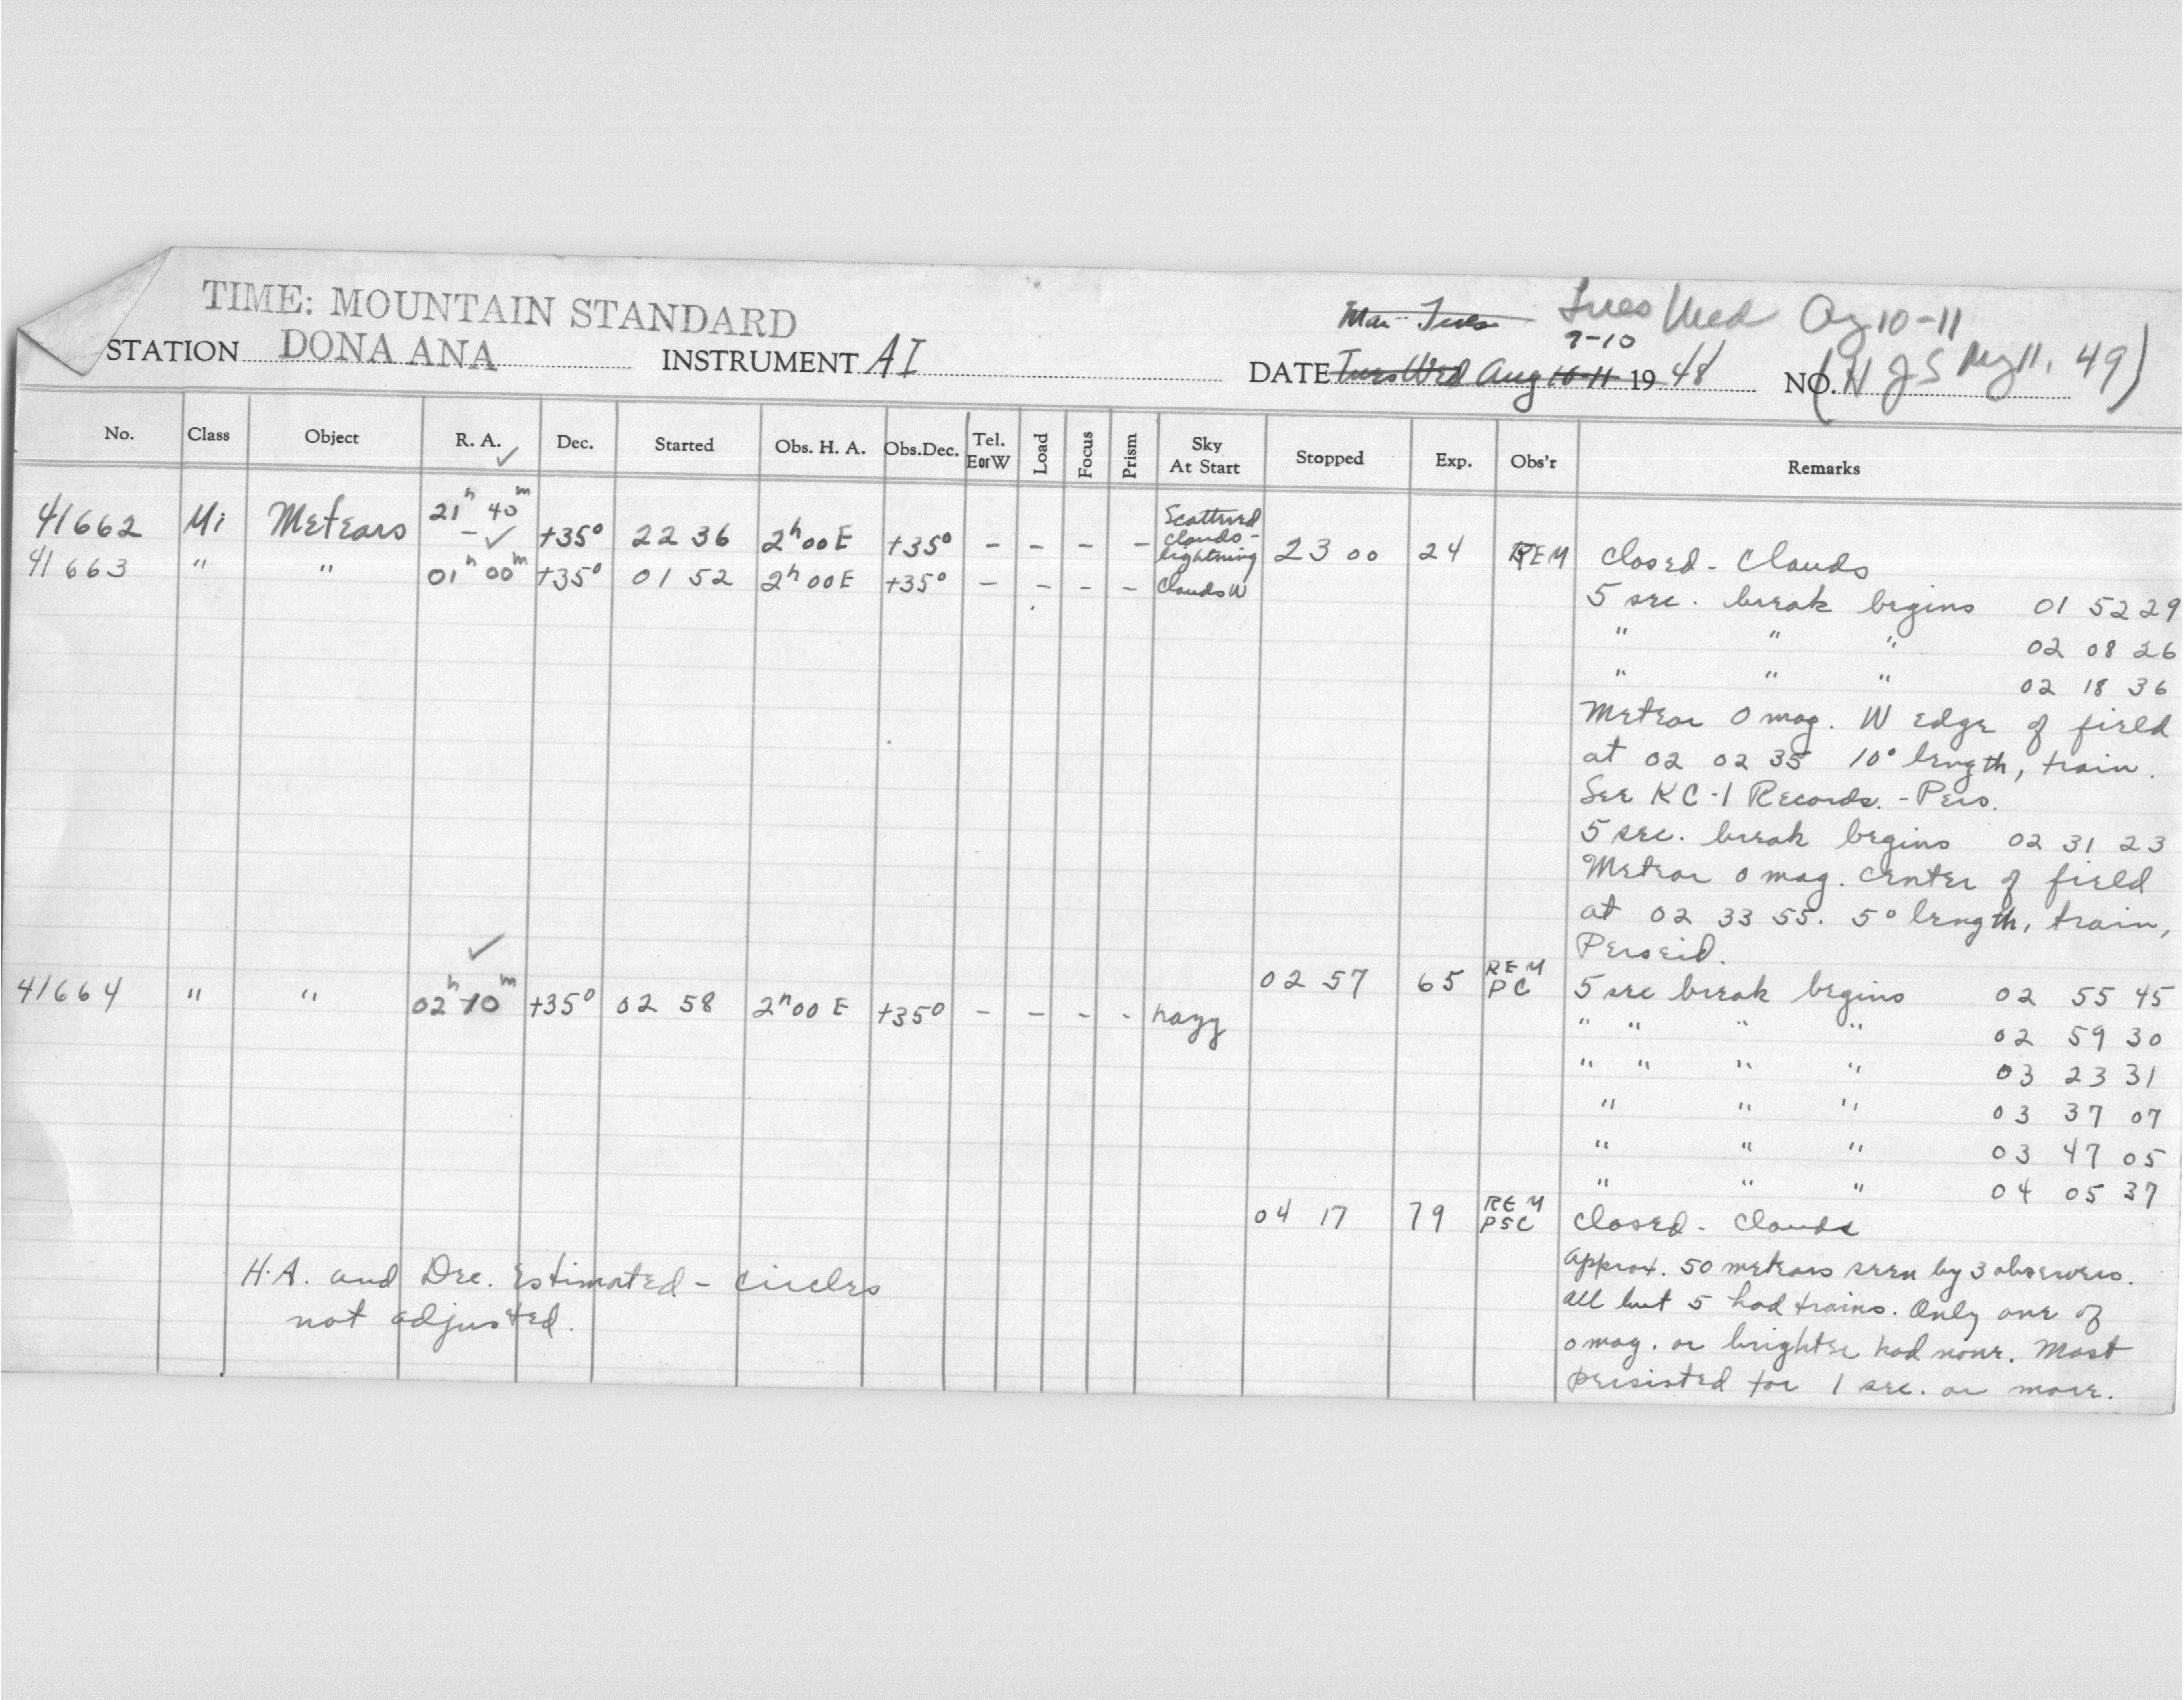 TIME: MOUNTAIN STANDARD
Mon - Tues Tues Wed Aug 10-11
9-10
STATION DONA ANA INSTRUMENT AI DATE Tues Wed Aug 10-11 1948 NO. (HJS Aug 11, 49)
No. Class Object R. A. ✓ Dec. Started Obs. H. A. Obs.Dec. Tel. E or W Load Focus Prism Sky At Start Stopped Exp. Obs'r Remarks
41662 Mi Meteors 21h 40m +35° 22 36 2h00E +35° - - - - Scattered clouds - lightning 23 00 24 REM Closed - Clouds
- ✓
41663 " " 01h 00m +35° 01 52 2h00E +35° - - - - Clouds W
5 sec. break begins 01 52 29
" " " 02 08 26
" " " 02 18 36
Meteor 0 mag. W edge of field
at 02 02 35 10° length, train.
See KC-1 Records. - Pers.
5 sec. break begins 02 31 23
Meteor 0 mag. center of field
at 02 33 55. 5° length, train,
Perseid.
02 57 65 REM PC 5 sec break begins 02 55 45
✓
41664 " " 02h 10m +35° 02 58 2h00 E +35° - - - - hazy
" " " " 02 59 30
" " " " 03 23 31
" " " 03 37 07
" " " 03 47 05
" " " 04 05 37
04 17 79 REM PSC Closed - Clouds
H.A. and Dec. Estimated - circles
not adjusted.
Approx. 50 meteors seen by 3 observers.
All but 5 had trains. Only one of
0 mag. or brighter had none. Most
persisted for 1 sec. or more.